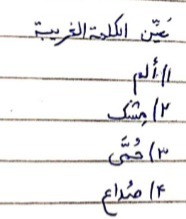 عَيِّن الكلمة الغريبة
١/ ألم
٢/ مِشک
٣/ حُمَّى
۴/ صُداع